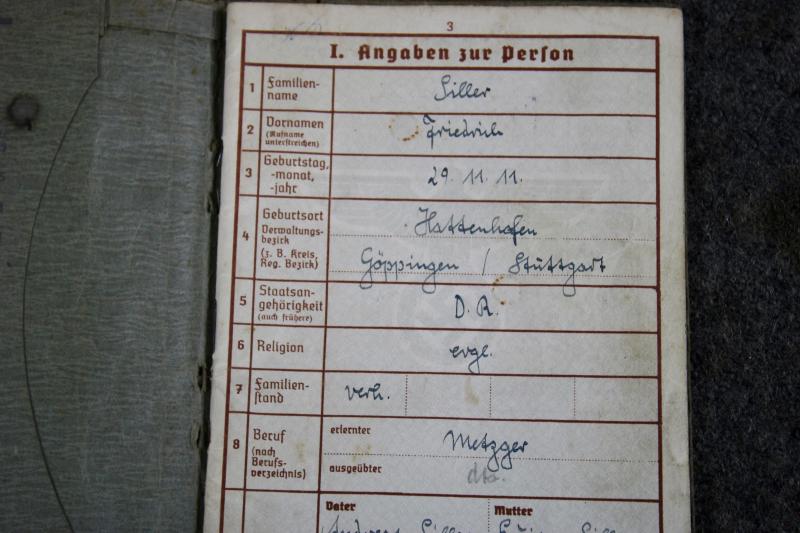 3
I. Angaben zur Person
1 Familien-
name
Siller
2 Vornamen
(Rufname
unterstreichen)
Friedrich
3 Geburtstag,
-monat,
-jahr
29. 11. 11.
4 Geburtsort
Verwaltungs-
bezirk
(z. B. Kreis,
Reg. Bezirk)
Hattenhofen
Göppingen / Stuttgart
5 Staatsan-
gehörigkeit
(auch frühere)
D. R.
6 Religion
evgl.
7 Familien-
stand
verh.
8 Beruf
(nach
Berufs-
verzeichnis)
erlernter
Metzger
ausgeübter
dto.
Vater
Mutter